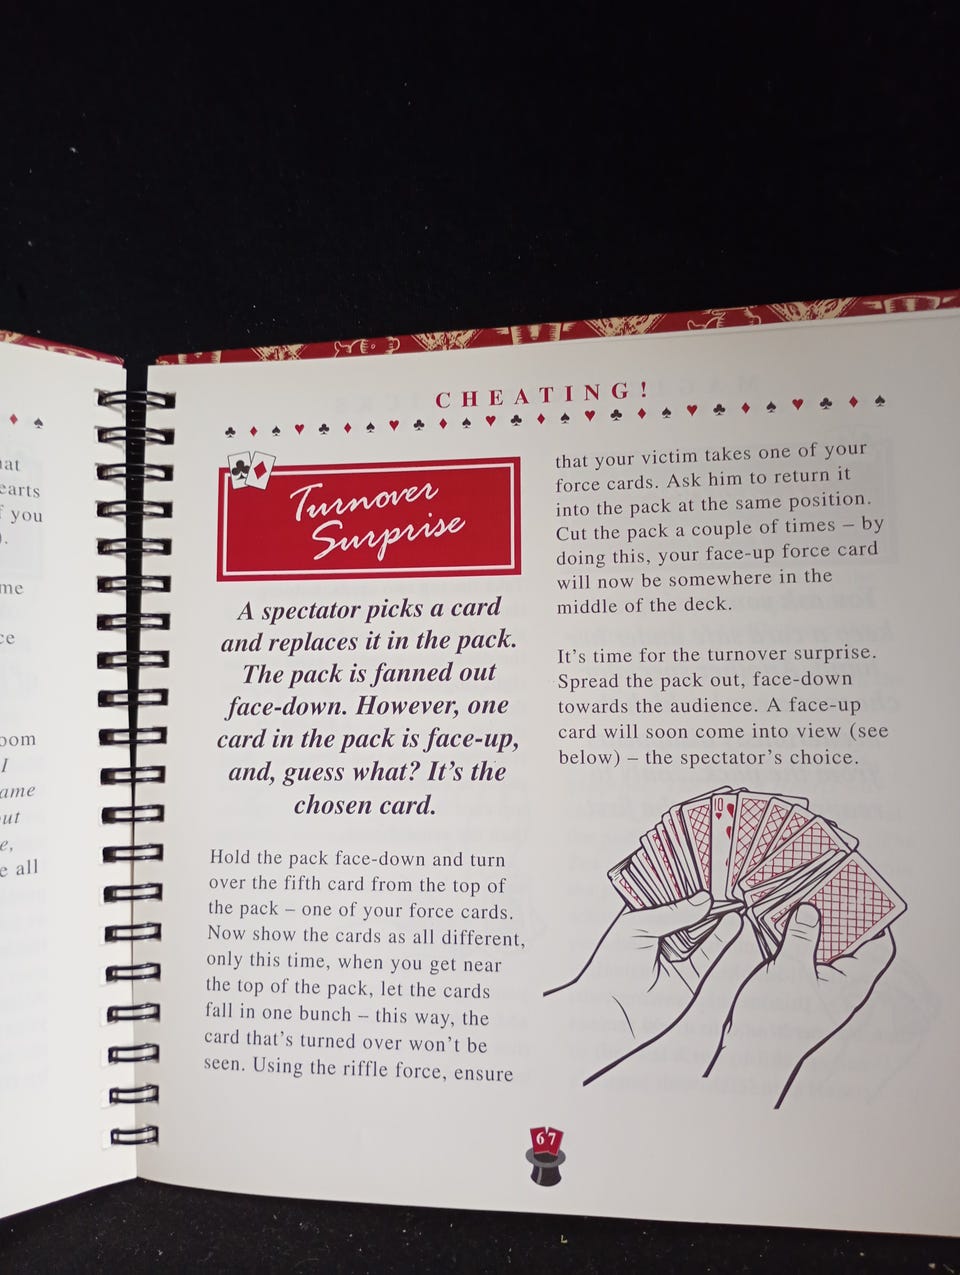 earts
you
me
ce
I
ame
out
e,
e all
CHEATING!
Turnover
Surprise
A spectator picks a card
and replaces it in the pack.
The pack is fanned out
face-down. However, one
card in the pack is face-up,
and, guess what? It's the
chosen card.
Hold the pack face-down and turn
over the fifth card from the top of
the pack – one of your force cards.
Now show the cards as all different,
only this time, when you get near
the top of the pack, let the cards
fall in one bunch – this way, the
card that's turned over won't be
seen. Using the riffle force, ensure
that your victim takes one of your
force cards. Ask him to return it
into the pack at the same position.
Cut the pack a couple of times – by
doing this, your face-up force card
will now be somewhere in the
middle of the deck.
It's time for the turnover surprise.
Spread the pack out, face-down
towards the audience. A face-up
card will soon come into view (see
below) – the spectator's choice.
10
67